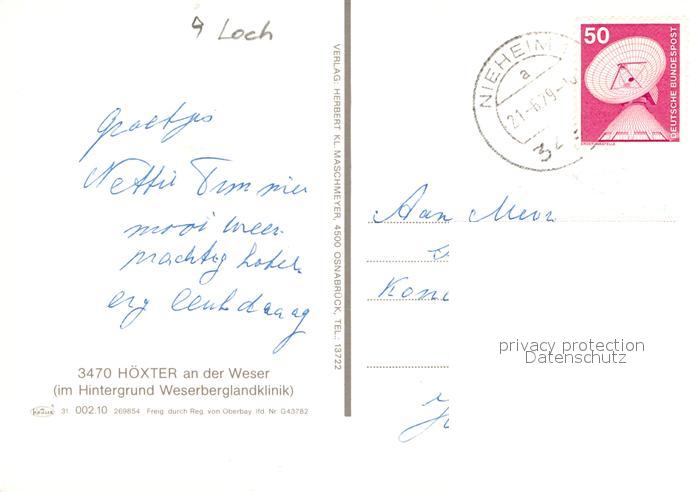 4 Loch
groetjes
Nettie Timmer
mooi weer
prachtig hotel
erg leuk
3470 HÖXTER an der Weser
(im Hintergrund Weserberglandklinik)
KRÜGER 31. 002.10 269854 Freig. durch Reg. von Oberbay. lfd. Nr G43782
VERLAG: HERBERT KL. MASCHMEYER, 4500 OSNABRÜCK, TEL.: 13722
NIEHEIM
a
21.-6.79
50
DEUTSCHE BUNDESPOST
ERDEFUNKSTELLE
Aan Mevr
privacy protection
Datenschutz